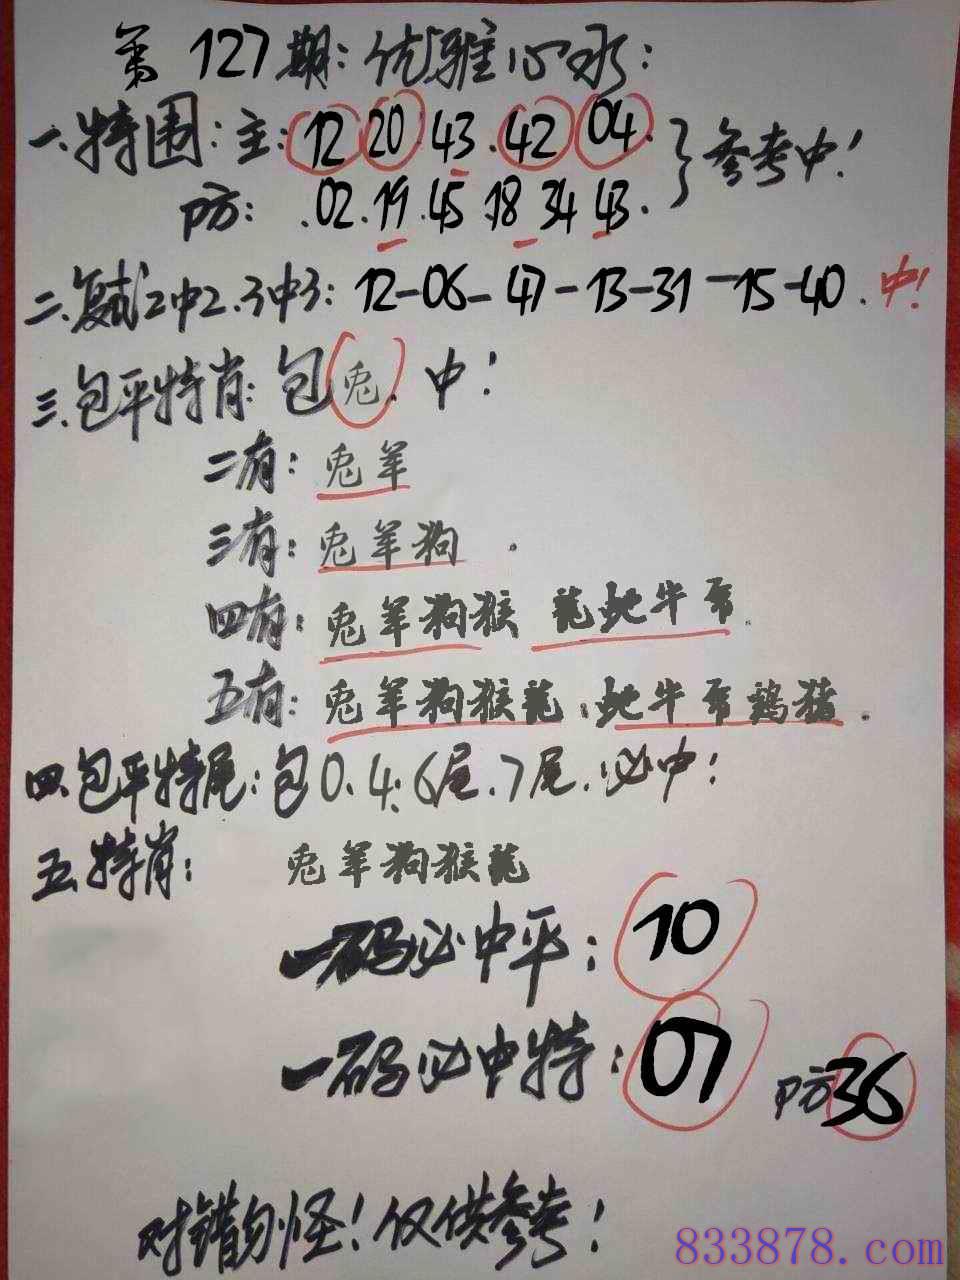 第127期:优雅心水:
一.特围:主:12 20.43.42 04.
防:.02.19.45.18 34 43. } 参考中!
二.复试2中2.3中3:12-06-47-13-31-15-40.中!
三.包平特肖:包兔.中!
二有:兔羊
三有:兔羊狗.
四有:兔羊狗猴 龍蛇牛马.
五有:兔羊狗猴龍.蛇牛马鸡猪.
四.包平特尾:包0.4.6尾.7尾.必中!
五.特肖:兔羊狗猴龍
一码必中平:10
一码必中特:07 防36
对错勿怪!仅供参考!
833878.com